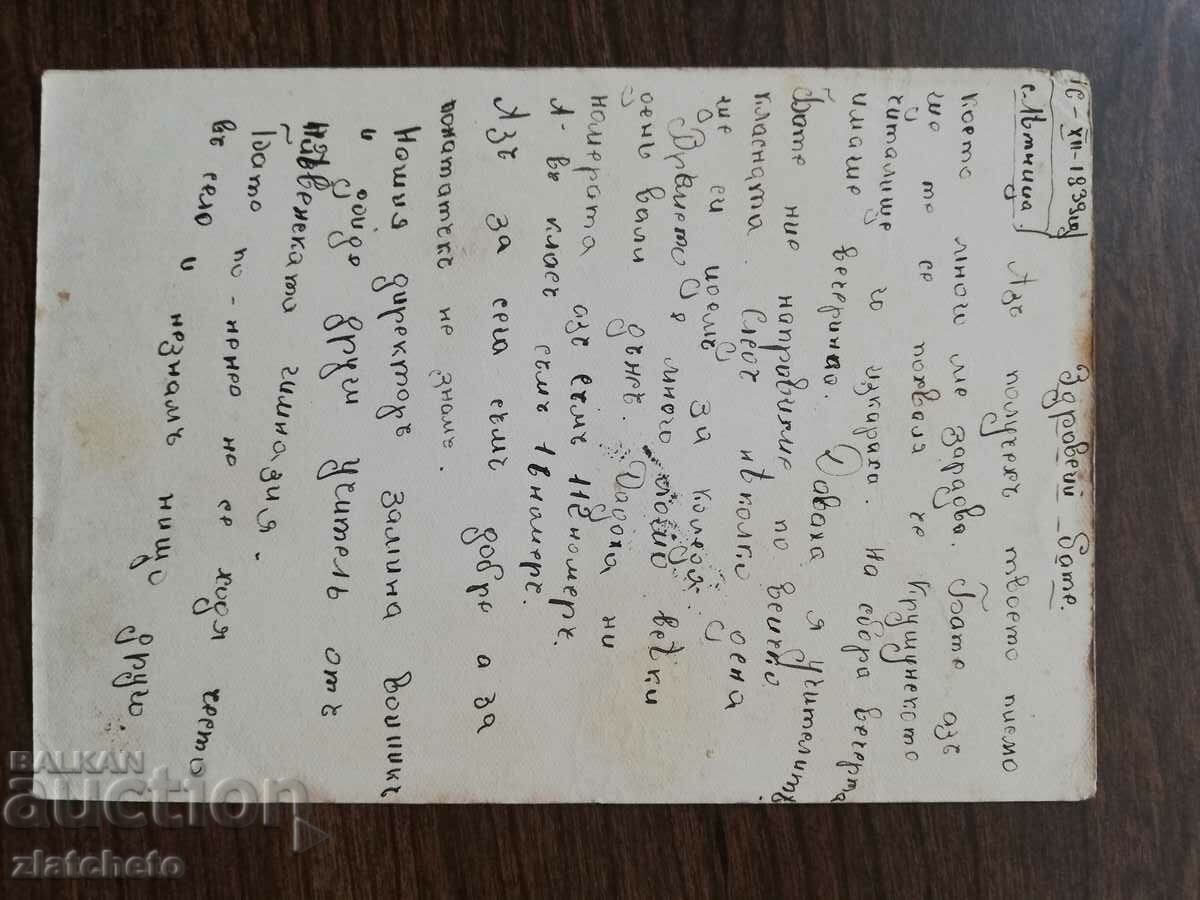 16-XII-1939 год
с. Лѣтница
Здравей Бате.
Азъ получехъ твоето писмо
което много ме зарадва. Бате азъ
що то се похваля че Крушунското
читалище го изкараха. На сбора вечерта
имаше вечеринка. Даваха я учителитѣ
Бате ние направихме по всички
класната. Следъ неколко дена
ще си доемъ за коледа.
Времето е много лошо. Вѣки
день вали дъжъ. Дадоха ни
номерата азъ съмъ 11 номеръ.
А- въ класъ съмъ 1 в номеръ.
Азъ за сега съмъ добре а за
понататекъ не знамъ.
Нашия директоръ замина войникъ
и дойде други учителъ отъ
Левенската гимназия.
Бате по-мене не се ходя често
въ село и незнамъ нищо друго
BALKAN
auction
zlatcheto